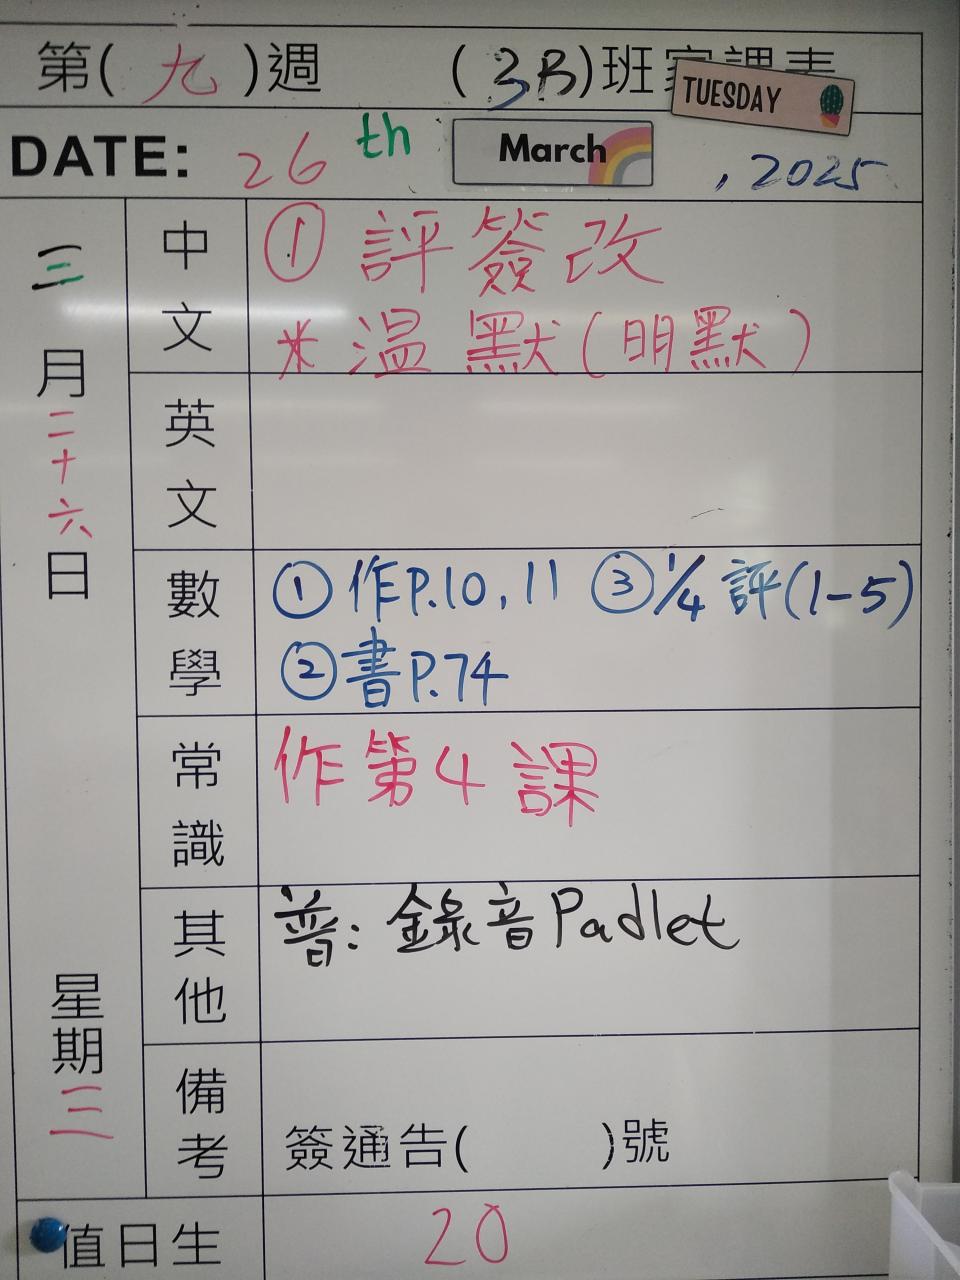 第(九)週 (3B)班家課表
TUESDAY
DATE: 26th March, 2025
三月二十六日 星期三
中文
① 評簽改
* 温默(明默)
英文
數學
① 作P.10, 11 ③ 1/4 評(1-5)
② 書P.74
常識
作第4課
其他
普: 錄音Padlet
備考
簽通告( )號
值日生 20